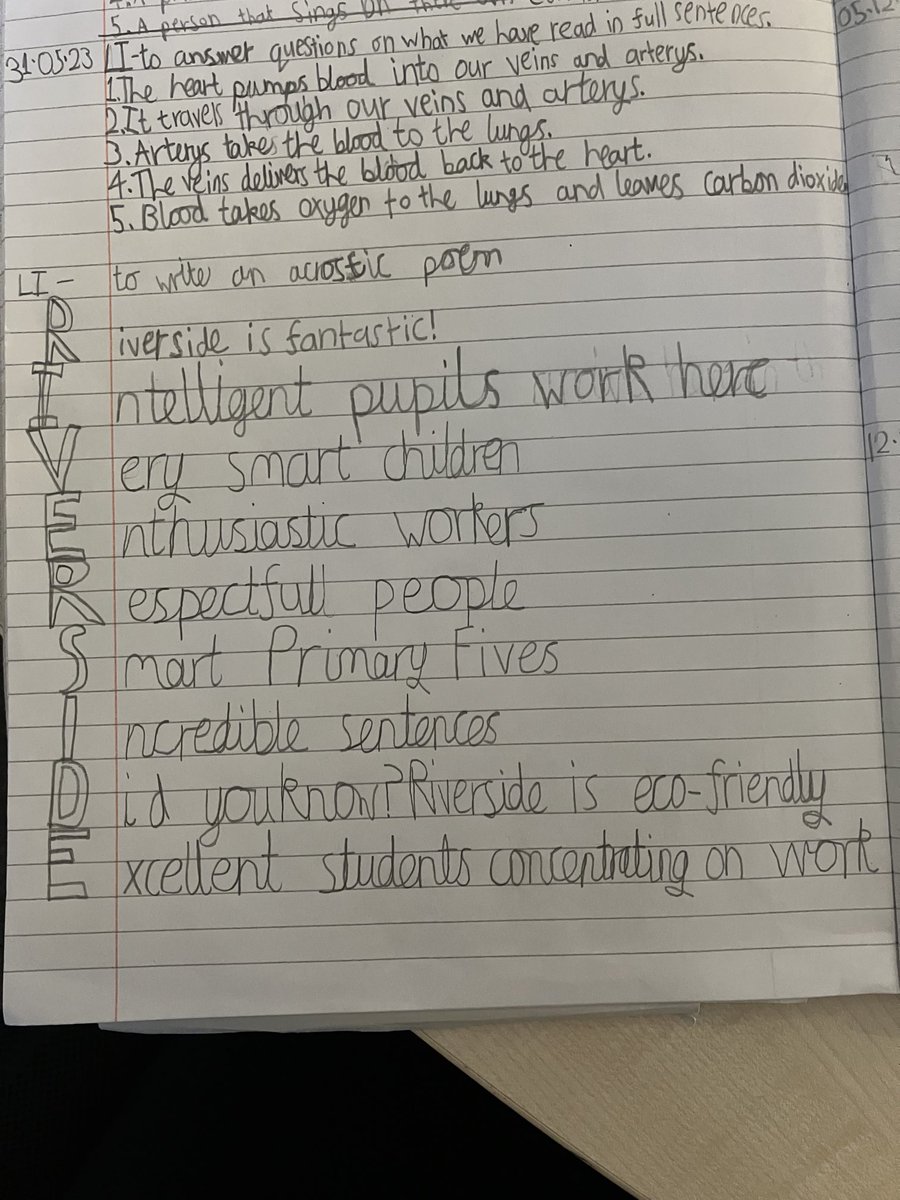 5. A person that sings on
31.05.23 LI-to answer questions on what we have read in full sentences.
1.The heart pumps blood into our veins and arterys.
2.It travels through our veins and arterys.
3. Arterys takes the blood to the lungs.
4.The veins delivers the blood back to the heart.
5. Blood takes oxygen to the lungs and leaves carbon dioxide
LI- to write an acrostic poem
Riverside is fantastic!
Intelligent pupils work here
Very smart children
Enthusiastic workers
Respectfull people
Smart Primary Fives
Incredible sentences
Did you know? Riverside is eco-friendly
Excellent students concentrating on work
05.12
12.